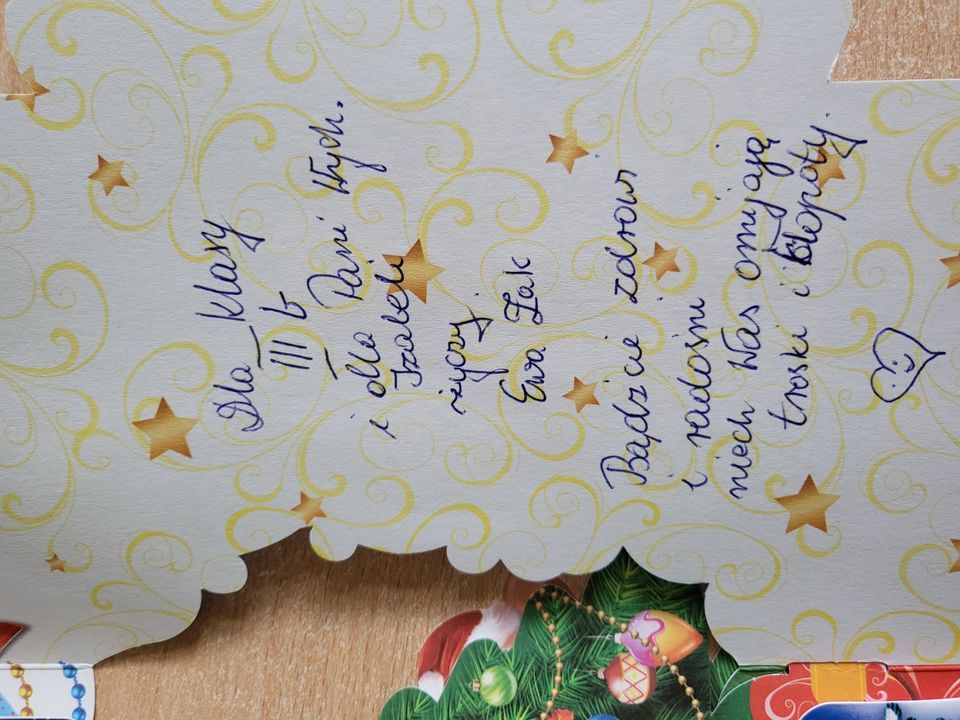 Dla Klasy
III b
i dla Pani Wych.
Izabeli
życzy
Ewa Żak
Bądźcie zdrowi
i radośni
niech Was omijają
troski i kłopoty.